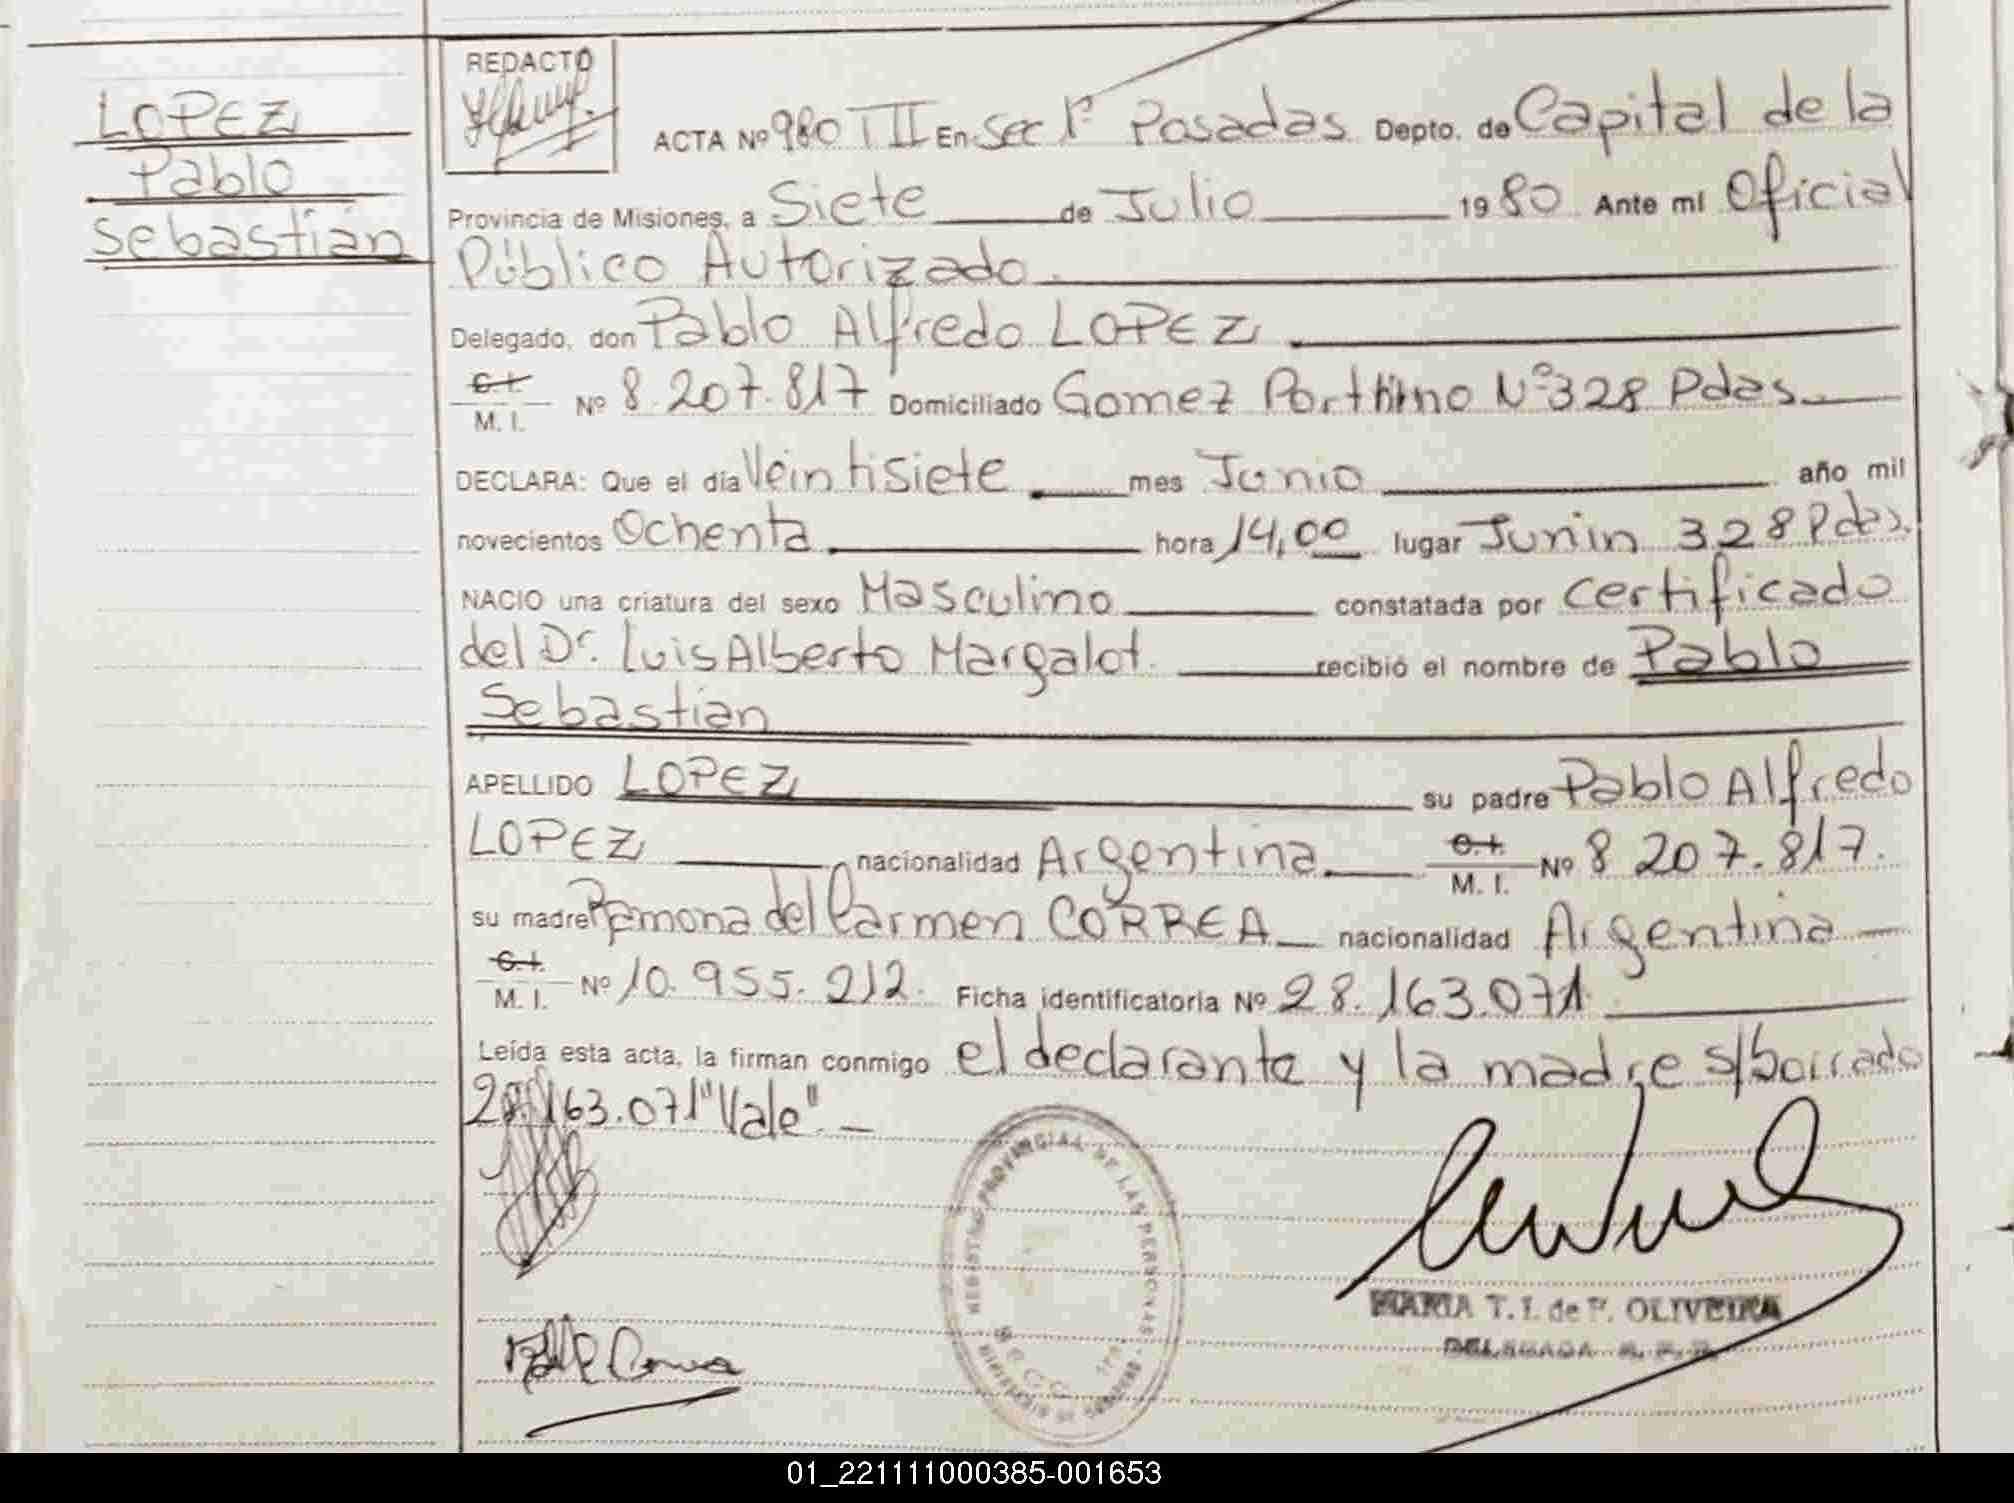 LOPEZ
Pablo
Sebastián
REDACTO
ACTA Nº 980 T II En Sec 1ª Posadas Depto. de Capital de la
Provincia de Misiones, a Siete de Julio 1980 Ante mí Oficial
Público Autorizado
Delegado, don Pablo Alfredo LOPEZ
C.I.
M. I. Nº 8.207.817 Domiciliado Gomez Porthino Nº 328 Pdas
DECLARA: Que el día Veintisiete mes Junio año mil
novecientos Ochenta hora 14,00 lugar Junin 328 Pdas.
NACIO una criatura del sexo Masculino constatada por Certificado
del Dr. Luis Alberto Margalot. recibió el nombre de Pablo
Sebastián
APELLIDO LOPEZ su padre Pablo Alfredo
LOPEZ nacionalidad Argentina C.I. M. I. Nº 8.207.817.
su madre Ramona del Carmen CORREA nacionalidad Argentina
C.I.
M. I. Nº 10.955.212. Ficha identificatoria Nº 28.163.071
Leída esta acta, la firman conmigo el declarante y la madre s/borrado
28.163.071 "Vale". —
REGISTRO PROVINCIAL DE LAS PERSONAS
MARIA T. I. de P. OLIVEIRA
DELEGADA R. P. P.
01_221111000385-001653